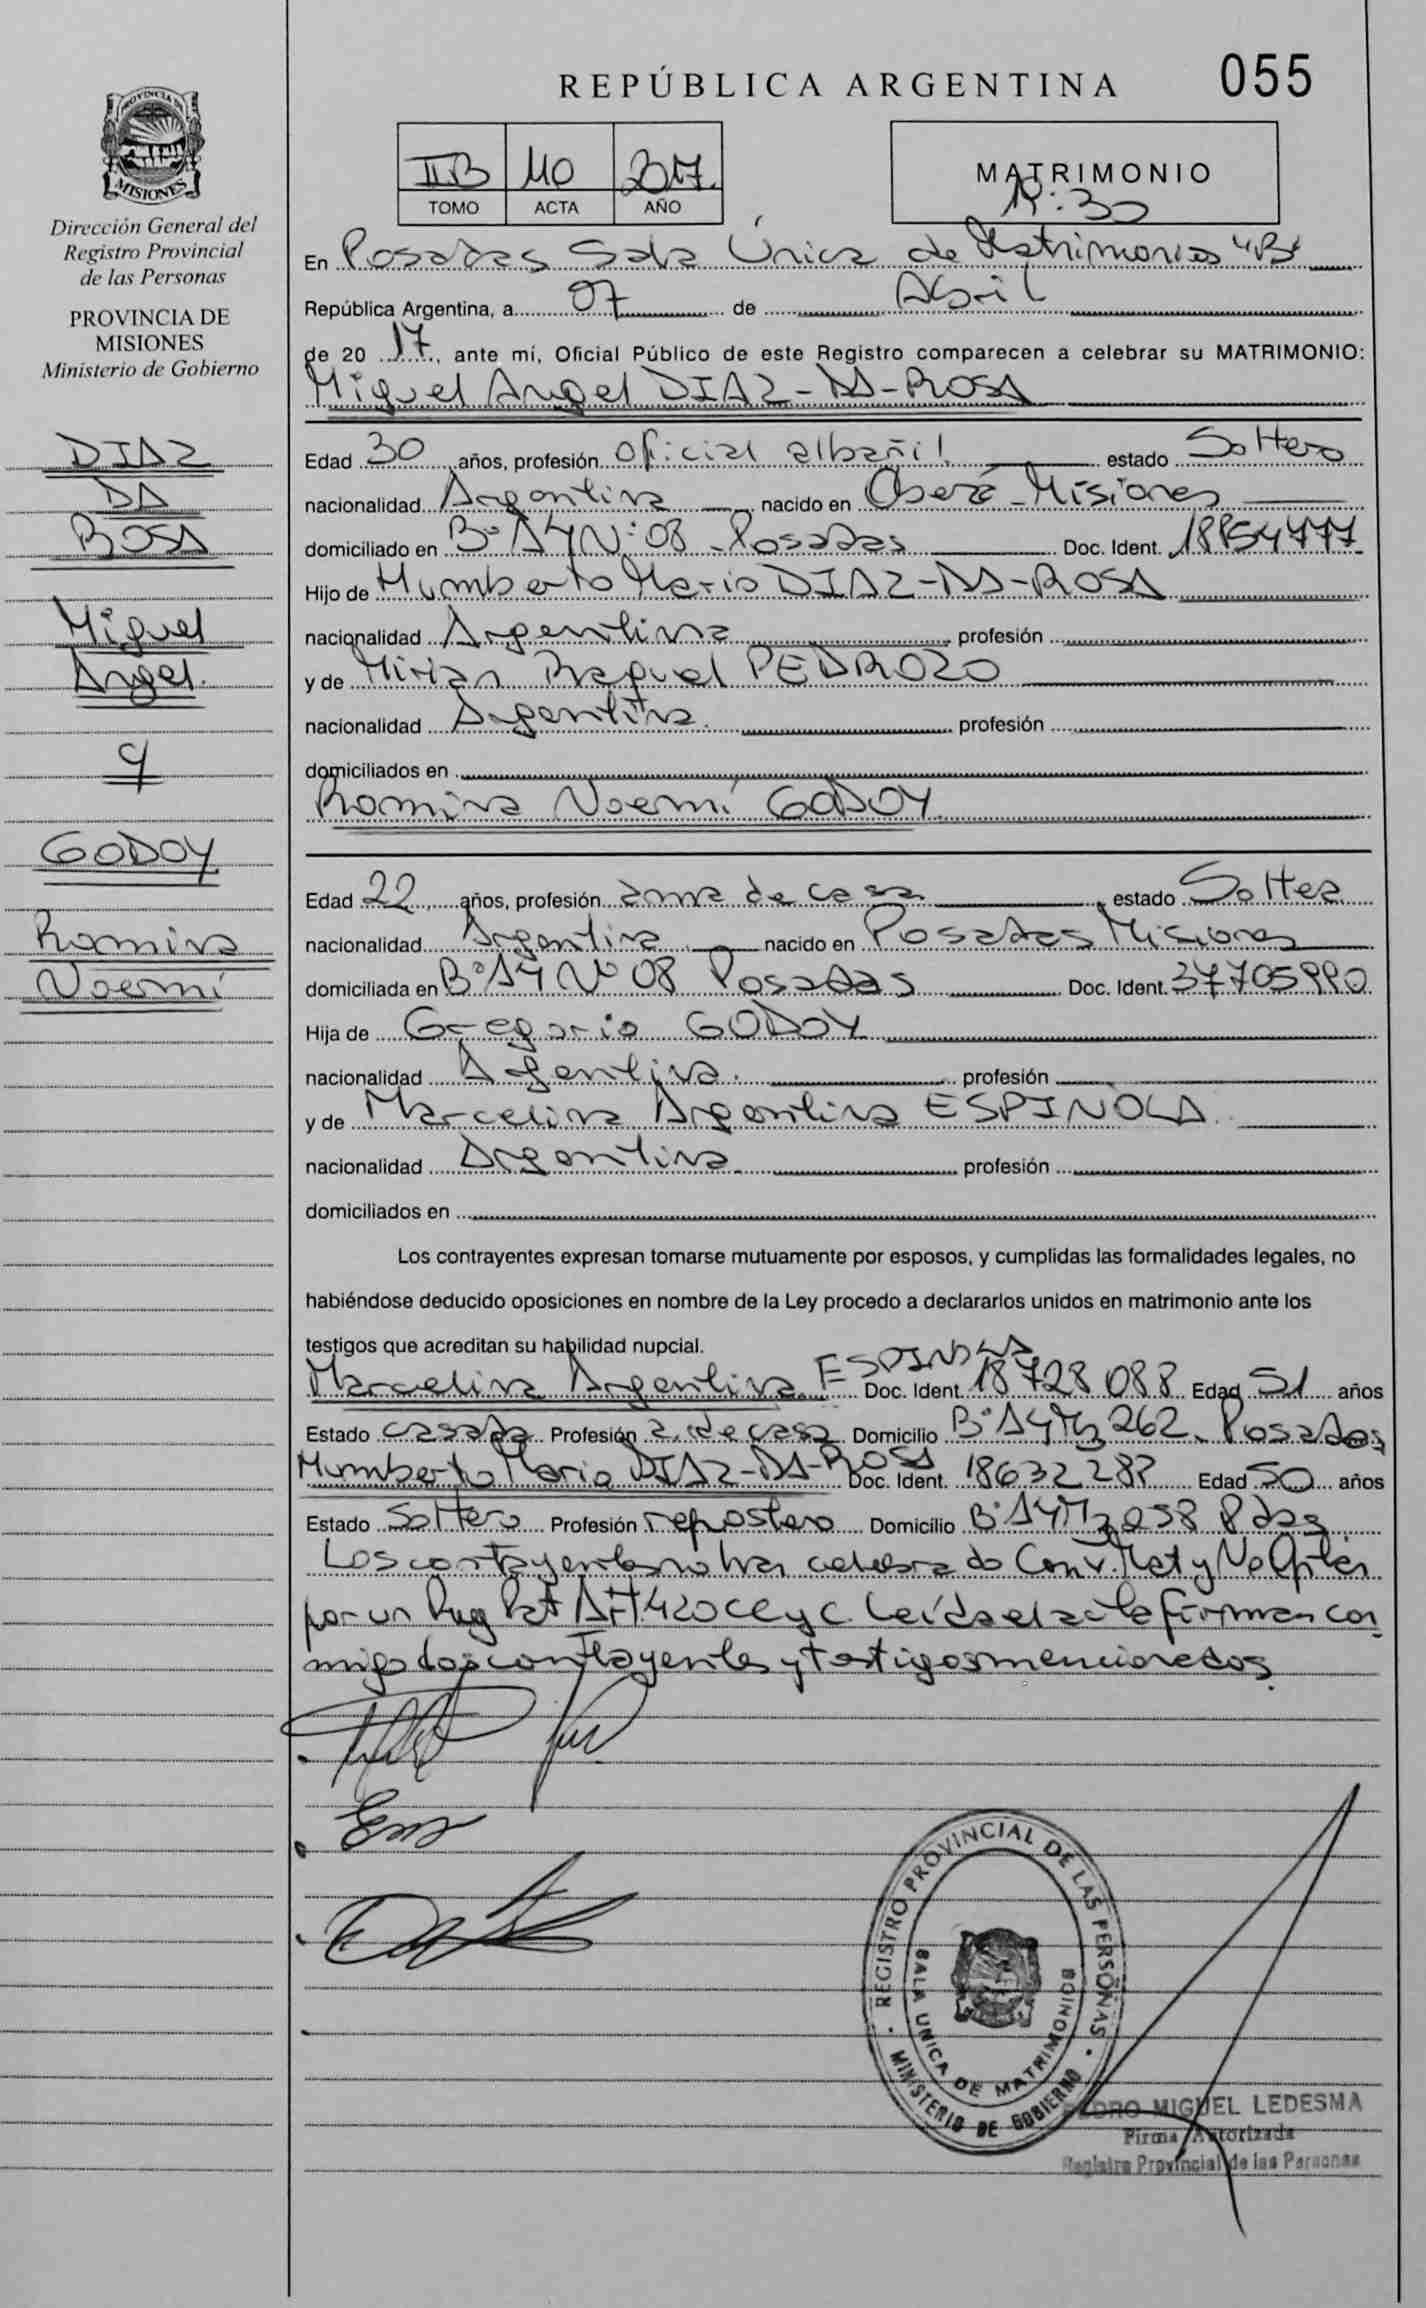 REPÚBLICA ARGENTINA
055
PROVINCIA DE
MISIONES
Dirección General del
Registro Provincial
de las Personas
PROVINCIA DE
MISIONES
Ministerio de Gobierno
IIB 110 2017.
TOMO ACTA AÑO
MATRIMONIO
Nº: 30
En Posadas Sala Única de Matrimonios "B"
República Argentina, a 07 de Abril
de 20 17, ante mí, Oficial Público de este Registro comparecen a celebrar su MATRIMONIO:
Miguel Angel DIAZ-DA-ROSA
Edad 30 años, profesión oficial albañil estado Soltero
nacionalidad Argentina nacido en Oberá-Misiones
domiciliado en Bº A4 Nº: 08 - Posadas Doc. Ident.
Hijo de Humberto Mario DIAZ-DA-ROSA
nacionalidad Argentina profesión
y de Mirian Raquel PEDROZO
nacionalidad Argentina. profesión
domiciliados en
Romina Noemí GODOY
Edad 22 años, profesión ama de casa estado Soltera
nacionalidad Argentina nacido en Posadas Misiones
domiciliada en Bº A4 Nº 08 Posadas Doc. Ident. 37705990
Hija de Gregorio GODOY
nacionalidad Argentina. profesión
y de Marcelina Argentina ESPINOLA.
nacionalidad Argentina profesión
domiciliados en
Los contrayentes expresan tomarse mutuamente por esposos, y cumplidas las formalidades legales, no
habiéndose deducido oposiciones en nombre de la Ley procedo a declararlos unidos en matrimonio ante los
testigos que acreditan su habilidad nupcial.
Marcelina Argentina ESPINOLA Doc. Ident. 18728088 Edad 51 años
Estado casada Profesión a. de casa Domicilio Bº A4 Mz 262 - Posadas
Humberto Mario DIAZ-DA-ROSA Doc. Ident. 18632287 Edad 50 años
Estado Soltero Profesión repostero Domicilio Bº A4 Mz 258 Pdas
Los contrayentes no han celebrado Conv. Mat y No Optan
por un Reg Pat Art 420 CC y C. Leída el acta firman con
migo los contrayentes y testigos mencionados.
DIAZ
DA
ROSA
Miguel
Angel.
y
GODOY
Romina
Noemí
REGISTRO PROVINCIAL DE LAS PERSONAS
SALA UNICA DE MATRIMONIOS
MINISTERIO DE GOBIERNO
PEDRO MIGUEL LEDESMA
Firma Autorizada
Registro Provincial de las Personas